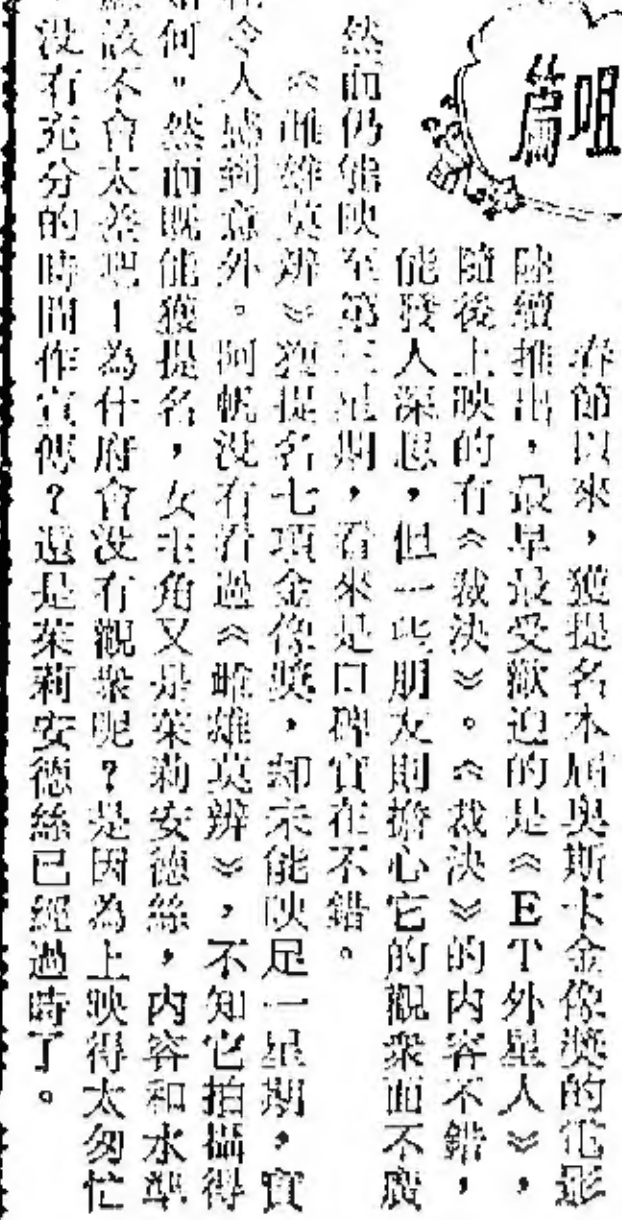 篇咀
春節以來，獲提名本屆奧斯卡金像獎的電影
陸續推出，最早最受歡迎的是《ET外星人》，
隨後上映的有《裁決》。《裁決》的内容不錯，
能發人深思，但一些朋友則擔心它的觀衆面不廣
然而仍能映至第三星期，看來是口碑實在不錯。
《雌雄莫辨》獲提名七項金像獎，却未能映足一星期，實
在令人感到意外。阿帆没有看過《雌雄莫辨》，不知它拍攝得
如何。然而既能獲提名，女主角又是茱莉安德絲，内容和水準
應該不會太差吧！為什府會没有觀衆呢？是因為上映得太匆忙
没有充分的時間作宣傳？還是茱莉安德絲已經過時了。